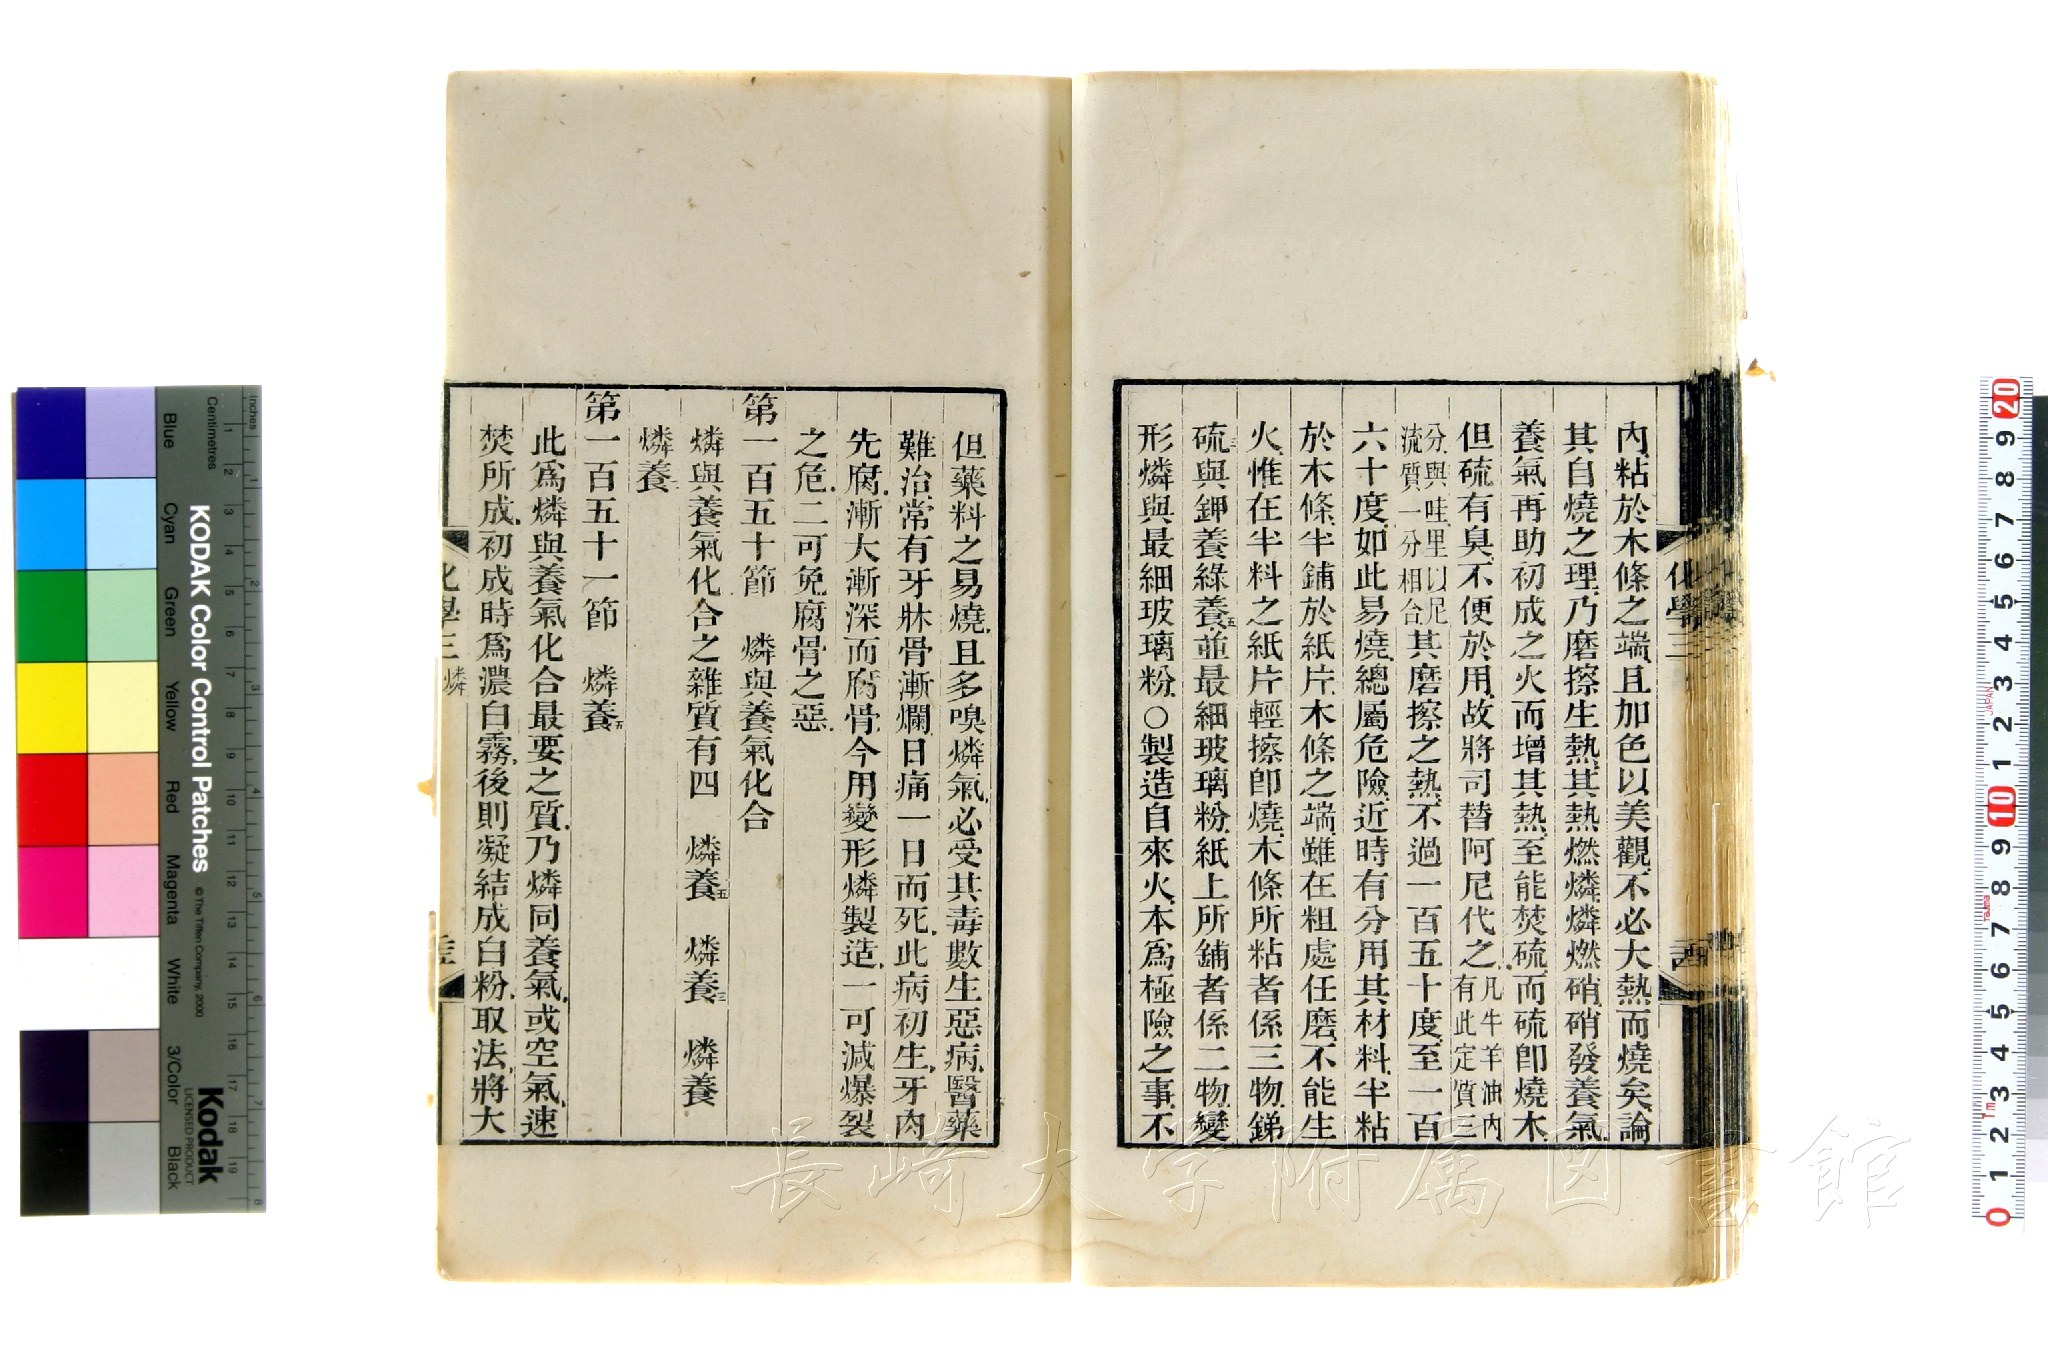 內粘於木條之端、且加色以美觀、不必大熱而燒矣、論
其自燒之理、乃磨擦生熱、其熱燃燐、燐燃硝、硝發養氣、
養氣再助初成之火而增其熱、至能焚硫、而硫卽燒木、
但硫有臭、不便於用、故將司替阿尼代之、凡牛羊油內有此定質三
分、與哇里以尼流質一分相合、其磨擦之熱、不過一百五十度、至一百
六十度、如此易燒、總屬危險、近時有分用其材料、半粘
於木條、半鋪於紙片、木條之端、雖在粗處任磨、不能生
火、惟在半料之紙片輕擦卽燒、木條所粘者係三物、銻
硫三與鉀養綠養五、並最細玻璃粉、紙上所鋪者係二物、變
形燐與最細玻璃粉、○製造自來火、本爲極險之事、不
化學三
但藥料之易燒、且多嗅燐氣、必受其毒、數生惡病、醫藥
難治、常有牙牀骨漸爛、日痛一日而死、此病初生、牙肉
先腐、漸大漸深而腐骨、今用變形燐製造、一可減爆裂
之危、二可免腐骨之惡、
第一百五十節　燐與養氣化合
燐與養氣化合之雜質有四　燐養五　燐養三　燐養
燐養二
第一百五十一節　燐養五
此爲燐與養氣化合最要之質、乃燐同養氣、或空氣、速
焚所成、初成時爲濃白霧、後則凝結成白粉、取法、將大
化學三 燐
長崎大学附属図書館
KODAK Color Control Patches
© The Tiffen Company, 2000
Kodak
LICENSED PRODUCT
Inches
Centimetres
Blue
Cyan
Green
Yellow
Red
Magenta
White
3/Color
Black
1 2 3 4 5 6 7 8
1 2 3 4 5 6 7 8 9 10 11 12 13 14 15 16 17 18 19
20 9 8 7 6 5 4 3 2 1 10 9 8 7 6 5 4 3 2 1 0
JAPAN
Tajima
1m